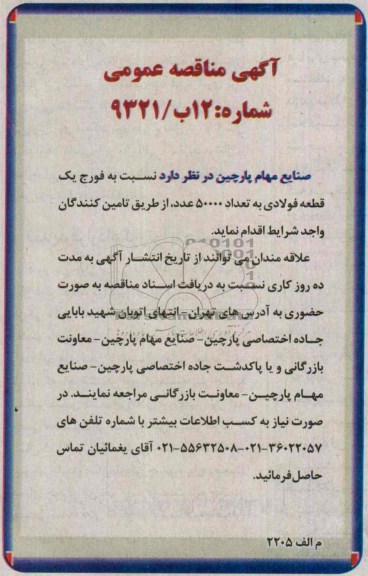 آگهی مناقصه عمومی
شماره:۱۲ب/۹۳۲۱
صنایع مهام پارچین در نظر دارد نسبت به فورج یک
قطعه فولادی به تعداد ۵۰۰۰۰ عدد، از طریق تامین کنندگان
واجد شرایط اقدام نماید.
علاقه مندان می توانند از تاریخ انتشار آگهی به مدت
ده روز کاری نسبت به دریافت اسناد مناقصه به صورت
حضوری به آدرس های تهران- انتهای اتوبان شهید بابایی
جاده اختصاصی پارچین- صنایع مهام پارچین- معاونت
بازرگانی و یا پاکدشت جاده اختصاصی پارچین- صنایع
مهام پارچین- معاونت بازرگانی مراجعه نمایند. در
صورت نیاز به کسب اطلاعات بیشتر با شماره تلفن های
۰۲۱-۳۶۰۲۲۰۵۷-۰۲۱-۵۵۶۳۲۵۰۸ آقای یغمائیان تماس
حاصل فرمائید.
م الف ۲۲۰۵